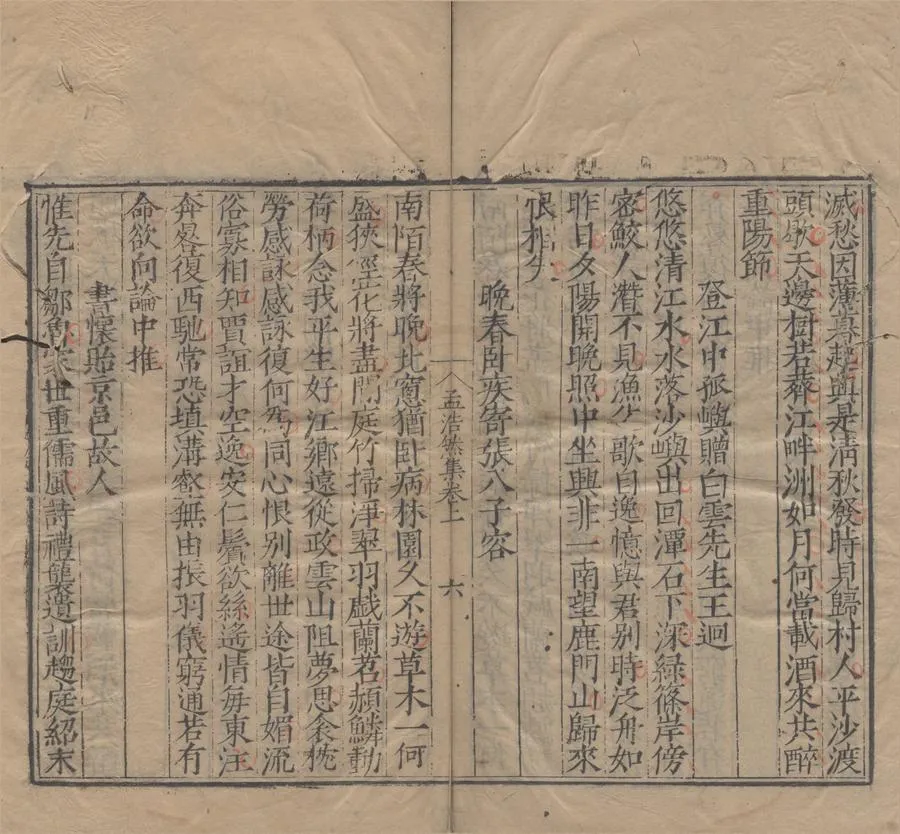 滅愁因薄暮起興是清秋發時見歸村人平沙渡
頭歇天邊樹若薺江畔洲如月何當載酒來共醉
重陽節
登江中孤嶼贈白雲先生王迥
悠悠清江水水落沙嶼出回潭石下深綠篠岸傍
密鮫人濳不見漁父歌自逸憶與君別時泛舟如
昨日夕陽開晚照中坐興非一南望鹿門山歸來
恨相失
晚春卧疾寄張八子容
孟浩然集卷上 六
南陌春將晚北窻猶卧病林園久不遊草木一何
盛狹徑花將盡閒庭竹掃淨翠羽戲蘭苕頳鱗動
荷柄念我平生好江鄉遠從政雲山阻夢思衾枕
勞感詠感詠復何為同心恨別離世途皆自媚流
俗寡相知賈誼才空逸安仁鬢欲絲遙情每東注
奔晷復西馳常恐填溝壑無由振羽儀窮通若有
命欲向論中推
書懷貽京邑故人
惟先自鄒魯家世重儒風詩禮襲遺訓趨庭紹末